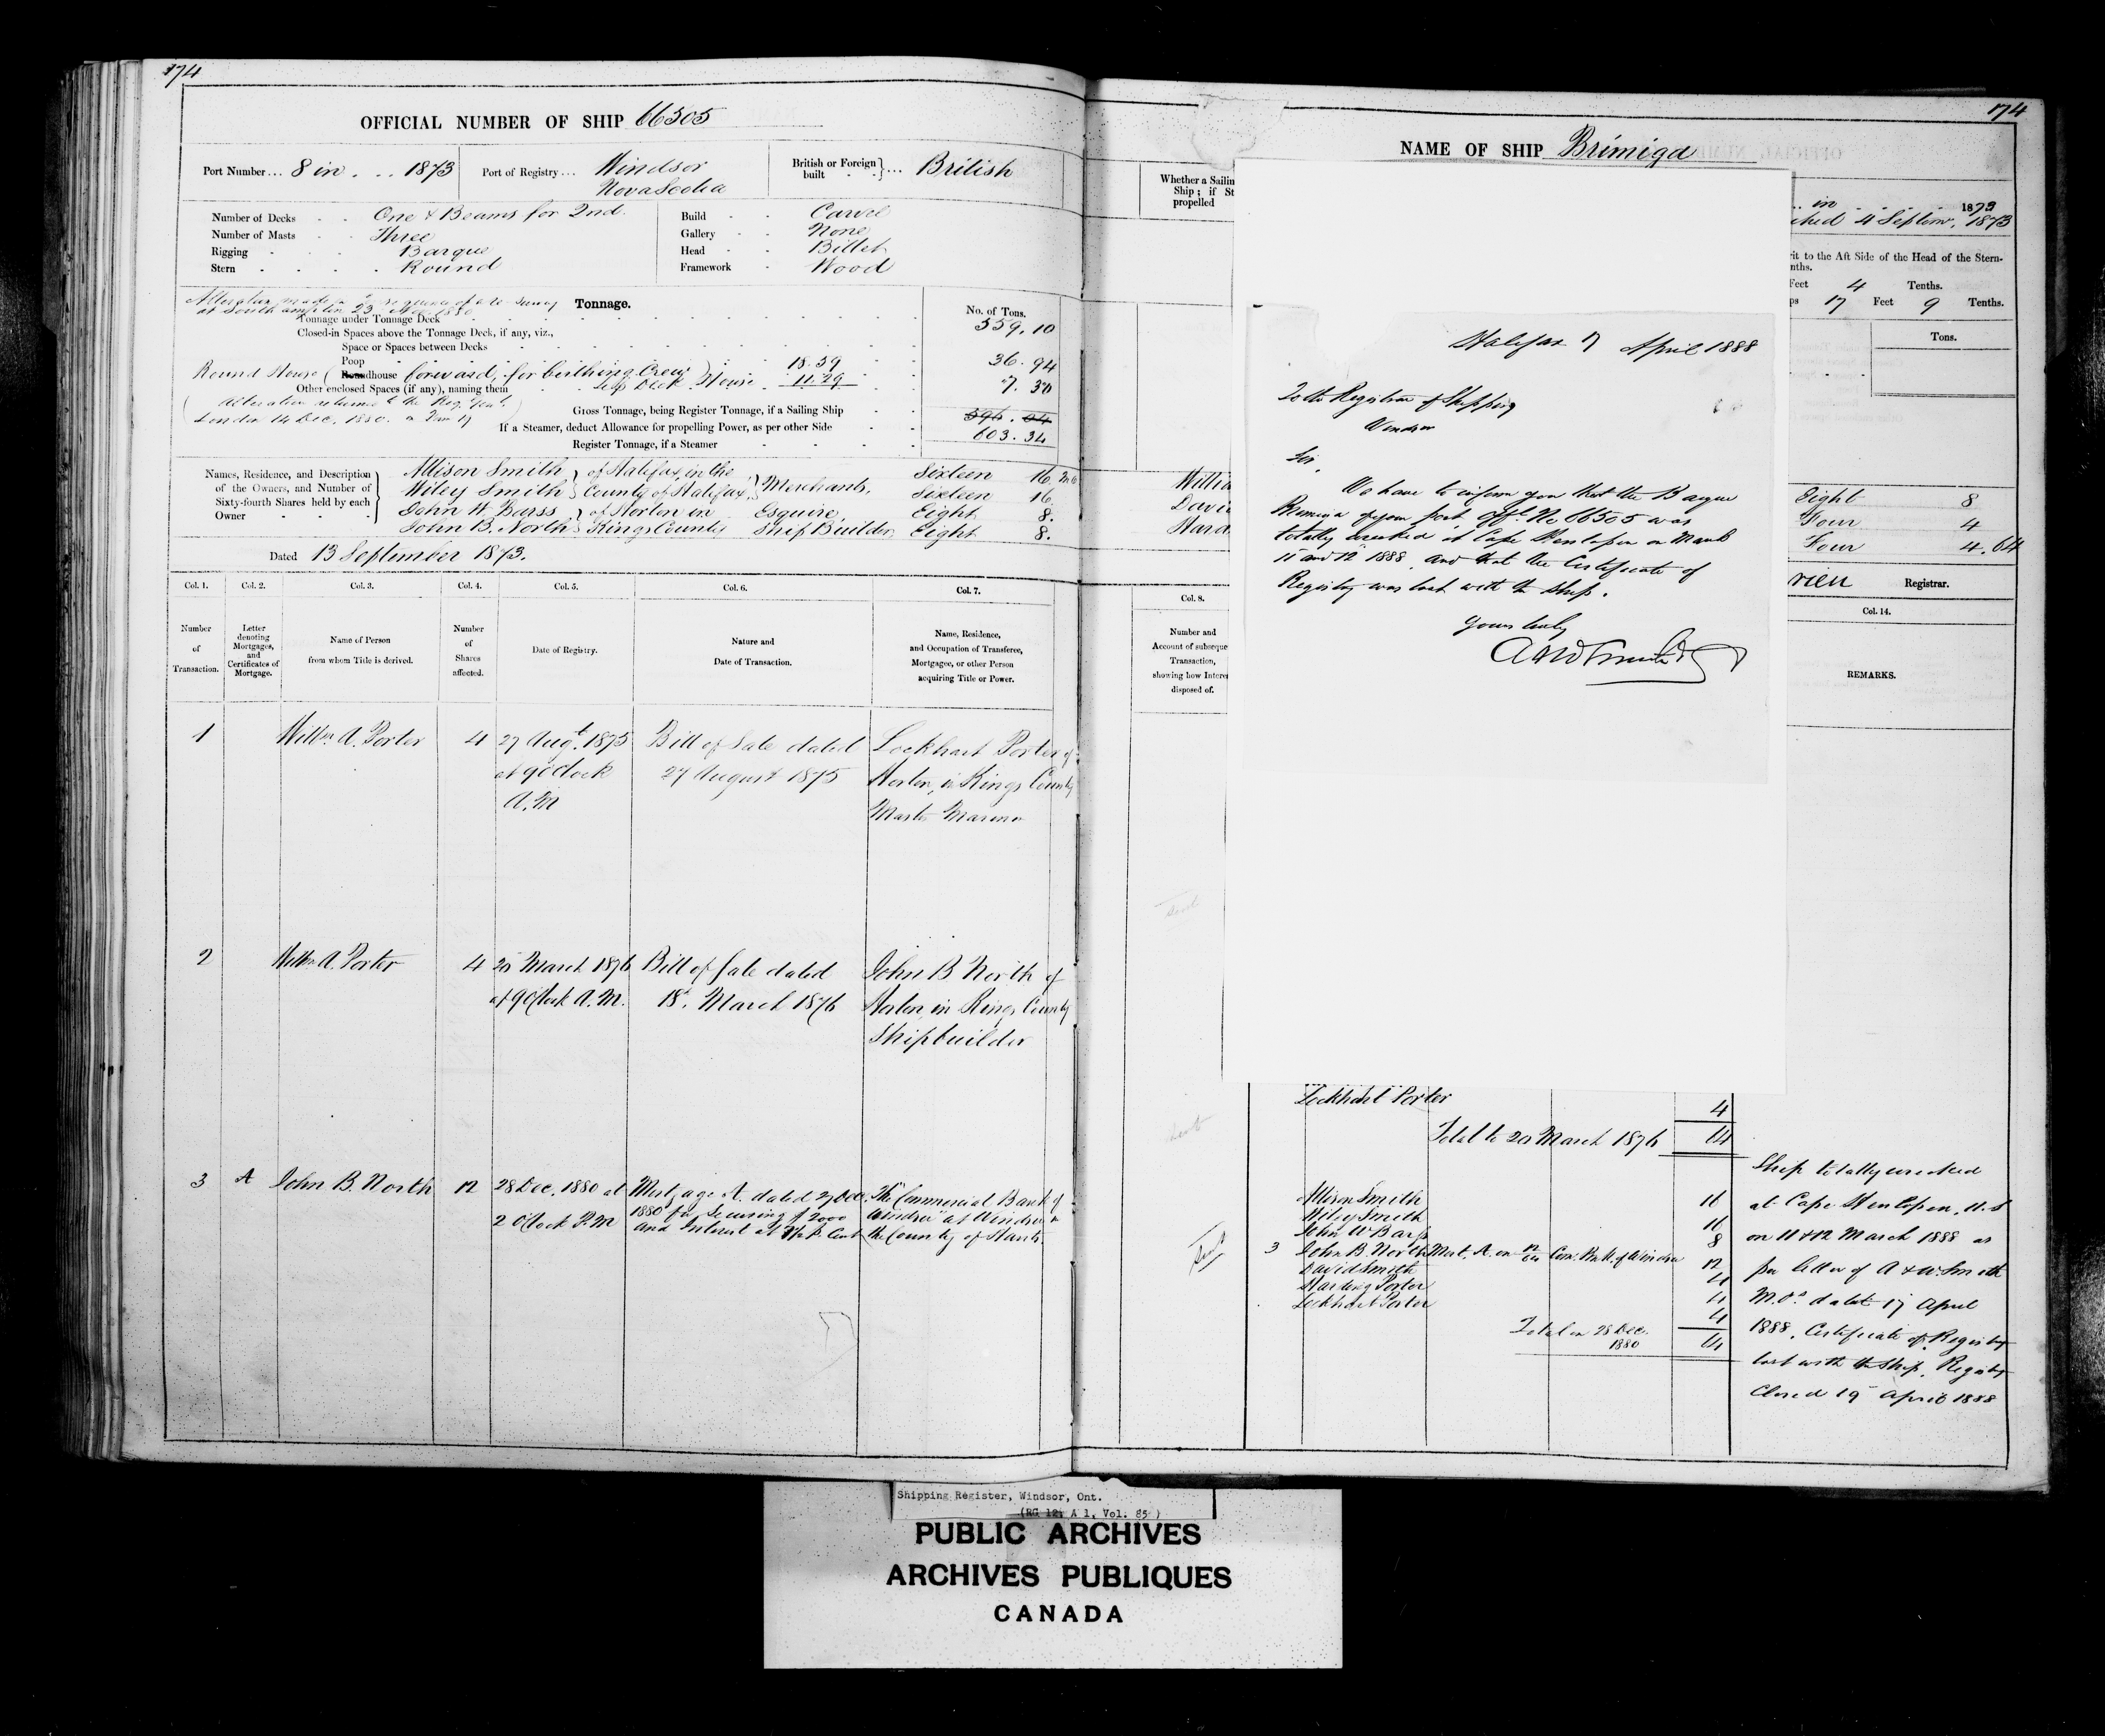 174
OFFICIAL NUMBER OF SHIP 66505
Port Number ... 8 in . .. 1873
Port of Registry ... Windsor
Nova Scotia
British or Foreign built } ... British
Number of Decks - - One & Beams for 2nd.
Number of Masts - - Three
Rigging - - - Barque
Stern - - - - Round
Build - - Carvel
Gallery - - None
Head - - Billet
Framework - Wood
Tonnage.
at Southampton 23 Nov 1880
No. of Tons.
Tonnage under Tonnage Deck 559.10
Closed-in Spaces above the Tonnage Deck, if any, viz.,
Space or Spaces between Decks
Poop 36.94
Round House ( Roundhouse forward, for birthing Crew ) 18.39
Other enclosed Spaces (if any), naming them House 11.29 7.30
London 14 Dec. 1880.
Gross Tonnage, being Register Tonnage, if a Sailing Ship 596.04
If a Steamer, deduct Allowance for propelling Power, as per other Side 603.34
Register Tonnage, if a Steamer
Names, Residence, and Description of the Owners, and Number of Sixty-fourth Shares held by each Owner
Allison Smith } of Halifax, in the } Merchants, Sixteen 16
Wiley Smith } County of Halifax } Sixteen 16
John W. Barss } of Horton in Esquire Eight 8.
John B. North } Kings County Ship Builder Eight 8.
Dated 13 September 1873.
Col. 1. Col. 2. Col. 3. Col. 4. Col. 5. Col. 6. Col. 7.
Number of Transaction.
Letter denoting Mortgages, and Certificates of Mortgage.
Name of Person from whom Title is derived.
Number of Shares affected.
Date of Registry.
Nature and Date of Transaction.
Name, Residence, and Occupation of Transferee, Mortgagee, or other Person acquiring Title or Power.
1 Willm A. Porter 4 27 Augt. 1875 Bill of Sale dated Lockhart Porter of
at 9 o'Clock 27 August 1875 Horton, in Kings County
A.M Master Mariner
2 Willm A. Porter 4 20 March 1876 Bill of Sale dated John B North of
at 9 o'Clock A.M. 18. March 1876 Horton, in Kings County
Shipbuilder
3 A John B. North 12 28 Dec. 1880 at Mortgage A. dated 27 Dec. The Commercial Bank of
2 o'Clock P.M 1880 for Securing $2000 Windsor at Windsor in
and Interest at 7 pr. Cent the County of Hants.
174
NAME OF SHIP Brimiga
Whether a Sailin
Ship ; if St
propelled
in 1873
4 Septem. 1873
rit to the Aft Side of the Head of the Stern-
nths.
Feet 4 Tenths.
17 Feet 9 Tenths.
Tons.
Willia
Davi
Hard
Eight 8
Four 4
Four 4.64
rien Registrar.
Col. 8.
Number and
Account of subseque
Transaction,
showing how Intere
disposed of.
Col. 14.
REMARKS.
Halifax 17 April 1888
To the Registrar of Shipping
Windsor
Sir,
We have to inform you that the Barque
Brimiga of your port Offl. No 66505 was
totally wrecked at Cape Henlopen on March
11 and 12 1888, and that the Certificate of
Registry was lost with the ship.
Yours truly
A & W Smith & Co
Lockhart Porter 4
Total to 20 March 1876 64
Sent
Allison Smith 16
Wiley Smith 16
John W Barss 8
3 John B. North Mort. A. on 12/64 Com. Bnk. of Windsor 12
David Smith 4
Harding Porter 4
Lockhart Porter 4
Total on 28 Dec. 1880 64
Ship totally wrecked
at Cape Henlopen, U.S
on 11 & 12 March 1888 as
per letter of A & W. Smith
dated 17 April
1888. Certificate of Registry
lost with the Ship. Registry
Closed 19 April 1888
Shipping Register, Windsor, Ont.
(RG 12, A 1, Vol. 85 )
PUBLIC ARCHIVES
ARCHIVES PUBLIQUES
CANADA